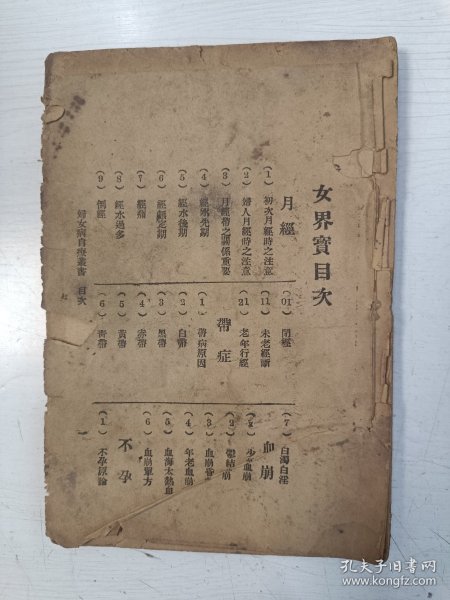 女界寶目次
月經
(1) 初次月經時之注意
(2) 婦人月經時之注意
(3) 月經帶之關係重要
(4) 經水先期
(5) 經水後期
(6) 經無定期
(7) 經痛
(8) 經水過多
(9) 倒經
(01) 閉經
(11) 未老經斷
(21) 老年行經
帶症
(1) 帶病原因
(2) 白帶
(3) 黑帶
(4) 赤帶
(5) 黃帶
(6) 青帶
(7) 白濁白淫
血崩
(1) 少女血崩
(2) 鬱結崩
(3) 血崩昏
(4) 年老血崩
(5) 血海太熱血
(6) 血崩單方
不孕
(1) 不孕原論
婦女病自療叢書 目次
一
孔夫子旧书网
www.kongfz.com